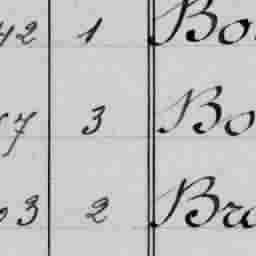 42 1 Bo
7 3 Bo
3 2 Br